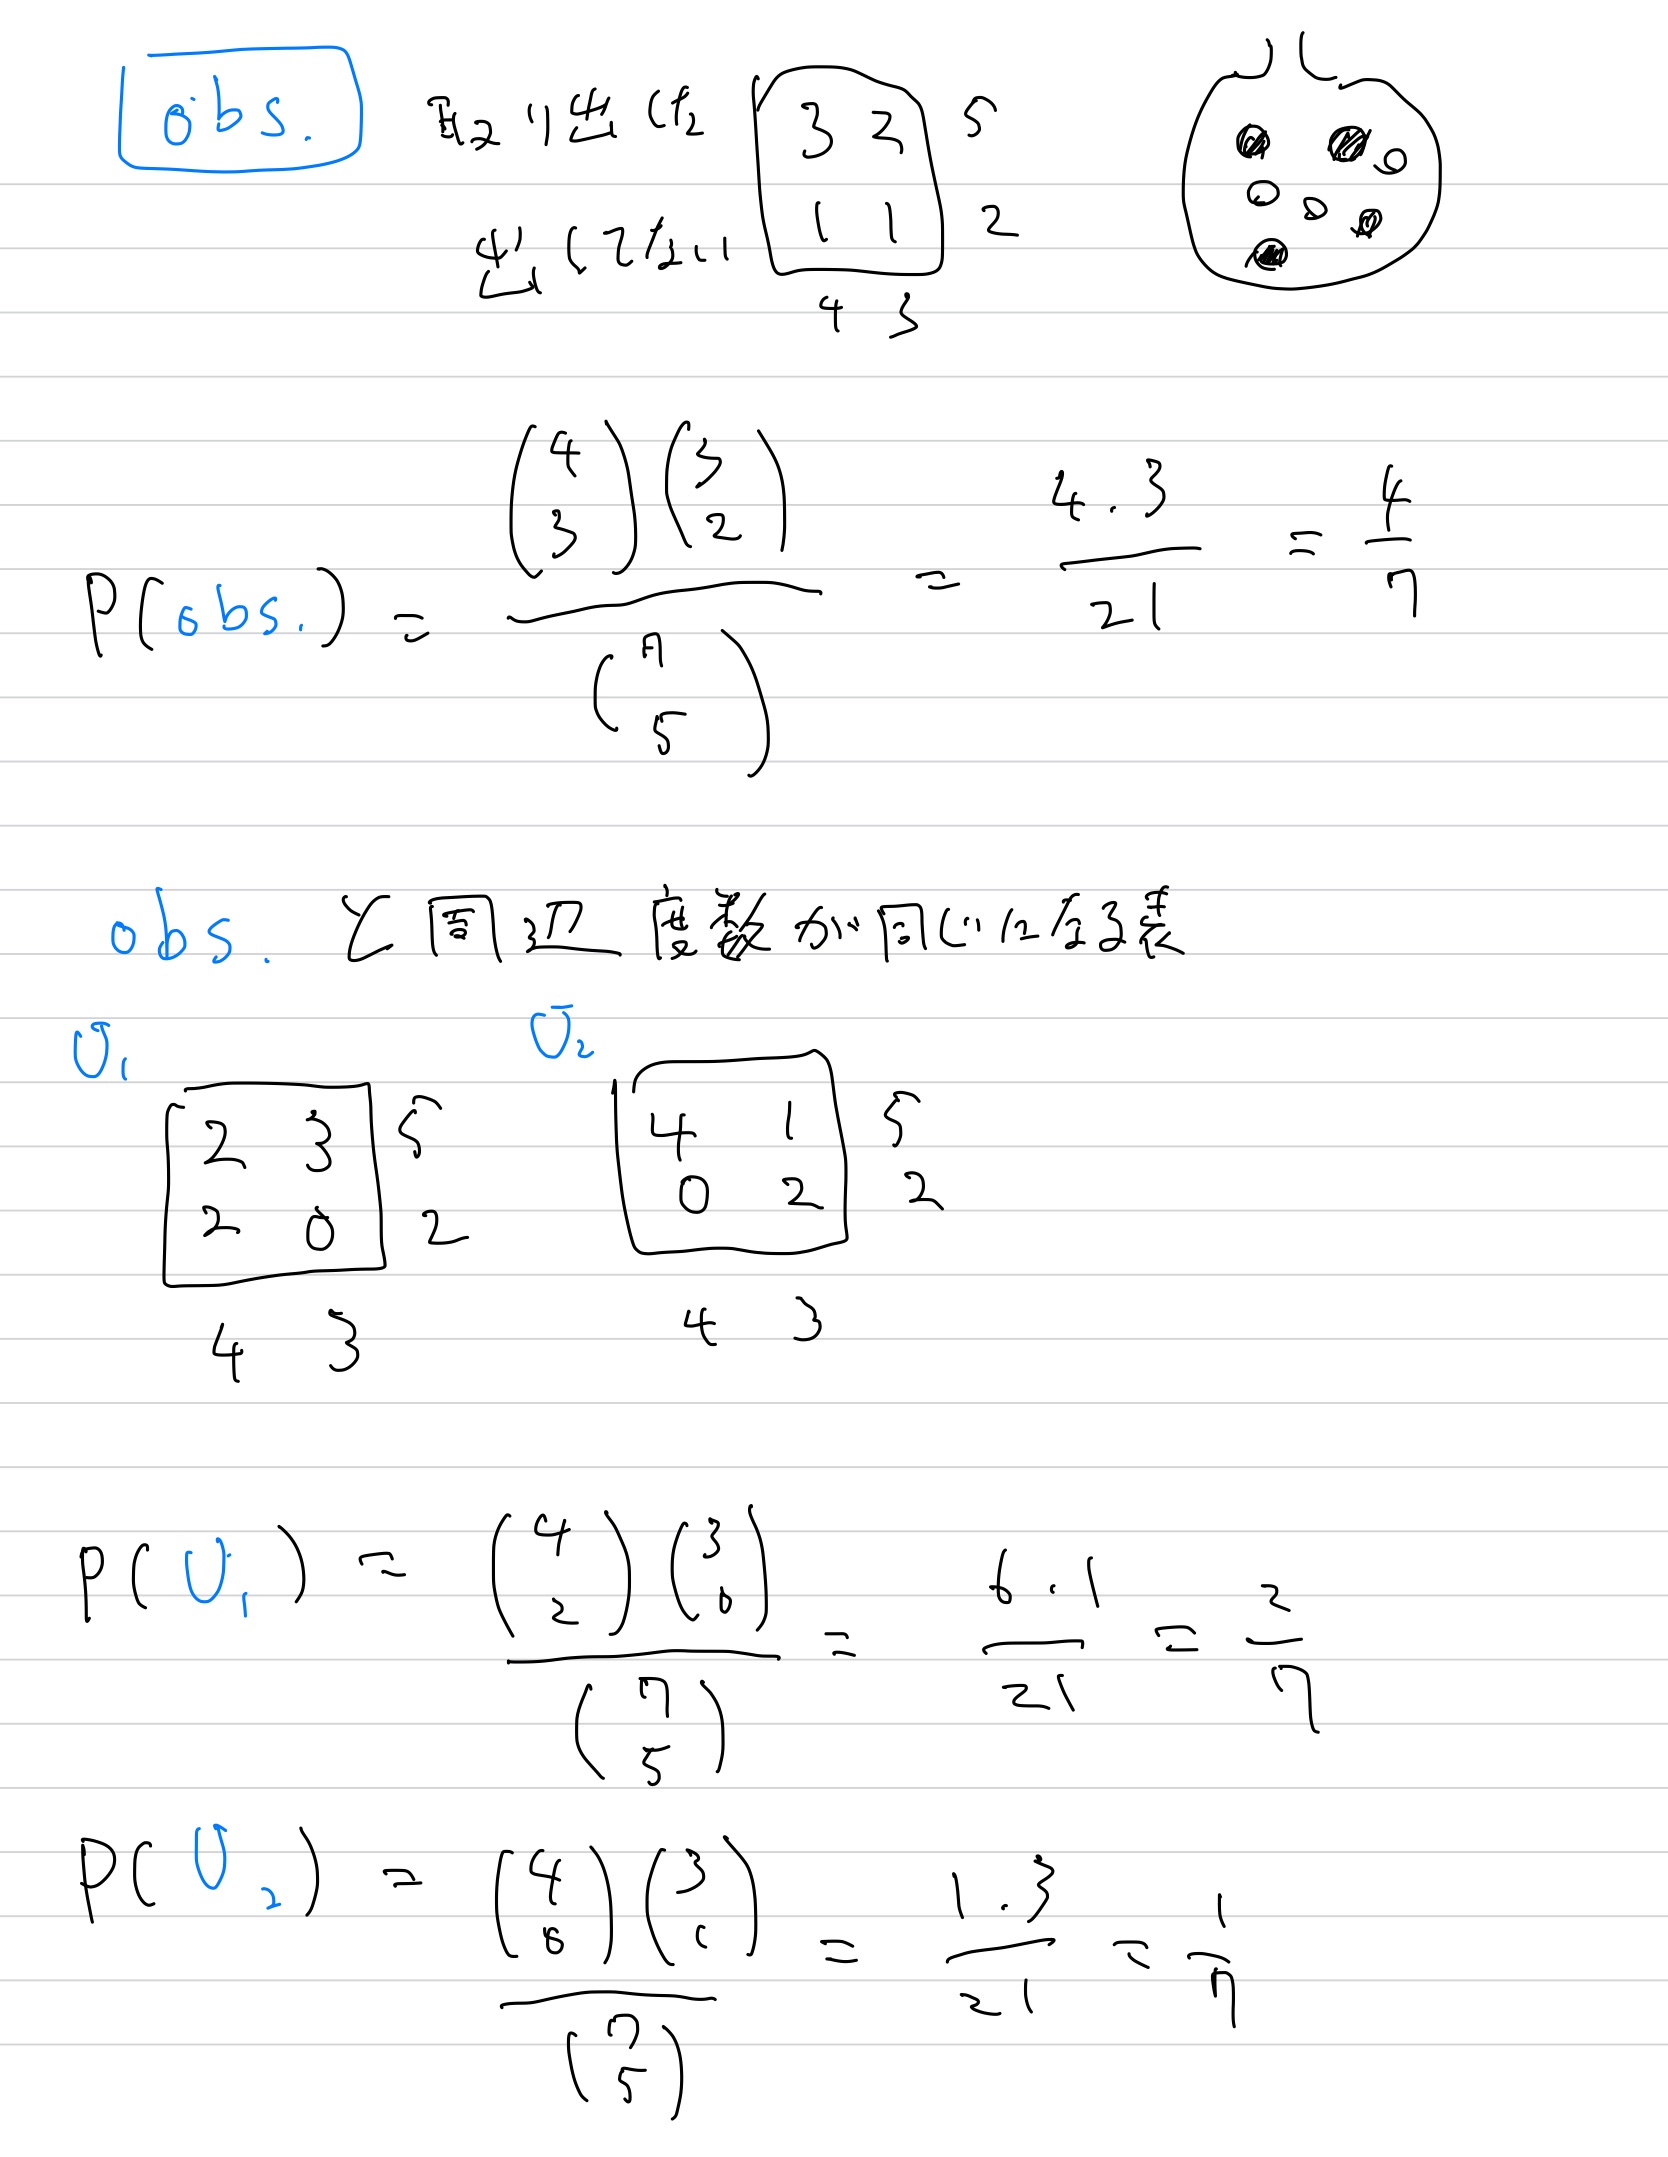 obs.
取り出した 3 2 5
出してない 1 1 2
4 3
P(obs.) = (4 3)(3 2) / (7 5) = 4·3 / 21 = 4/7
obs. と周辺度数が同じになる表
U1 U2
2 3 5 4 1 5
2 0 2 0 2 2
4 3 4 3
P(U1) = (4 2)(3 0) / (7 5) = 6·1 / 21 = 2/7
P(U2) = (4 0)(3 1) / (7 5) = 1·3 / 21 = 1/7